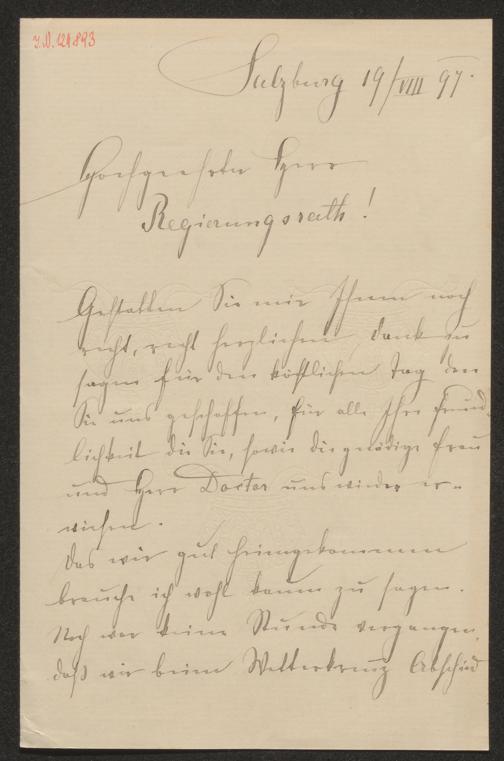 J.N. 121893
Salzburg 19/VIII 97.
Hochgeehrter Herr
Regierungsrath!
Gestatten Sie mir Ihnen noch
recht, recht herzlichen Dank zu
sagen für den köstlichen Tag den
Sie uns geschaffen, für alle Ihre Freund-
lichkeit die Sie, sowie die gnädige Frau
und Herr Doctor uns wieder er-
wiesen.
Das wir gut heimgekommen
brauche ich wohl kaum zu sagen.
Noch war keine Stunde vergangen,
daß wir beim Wetterkreuz Abschied